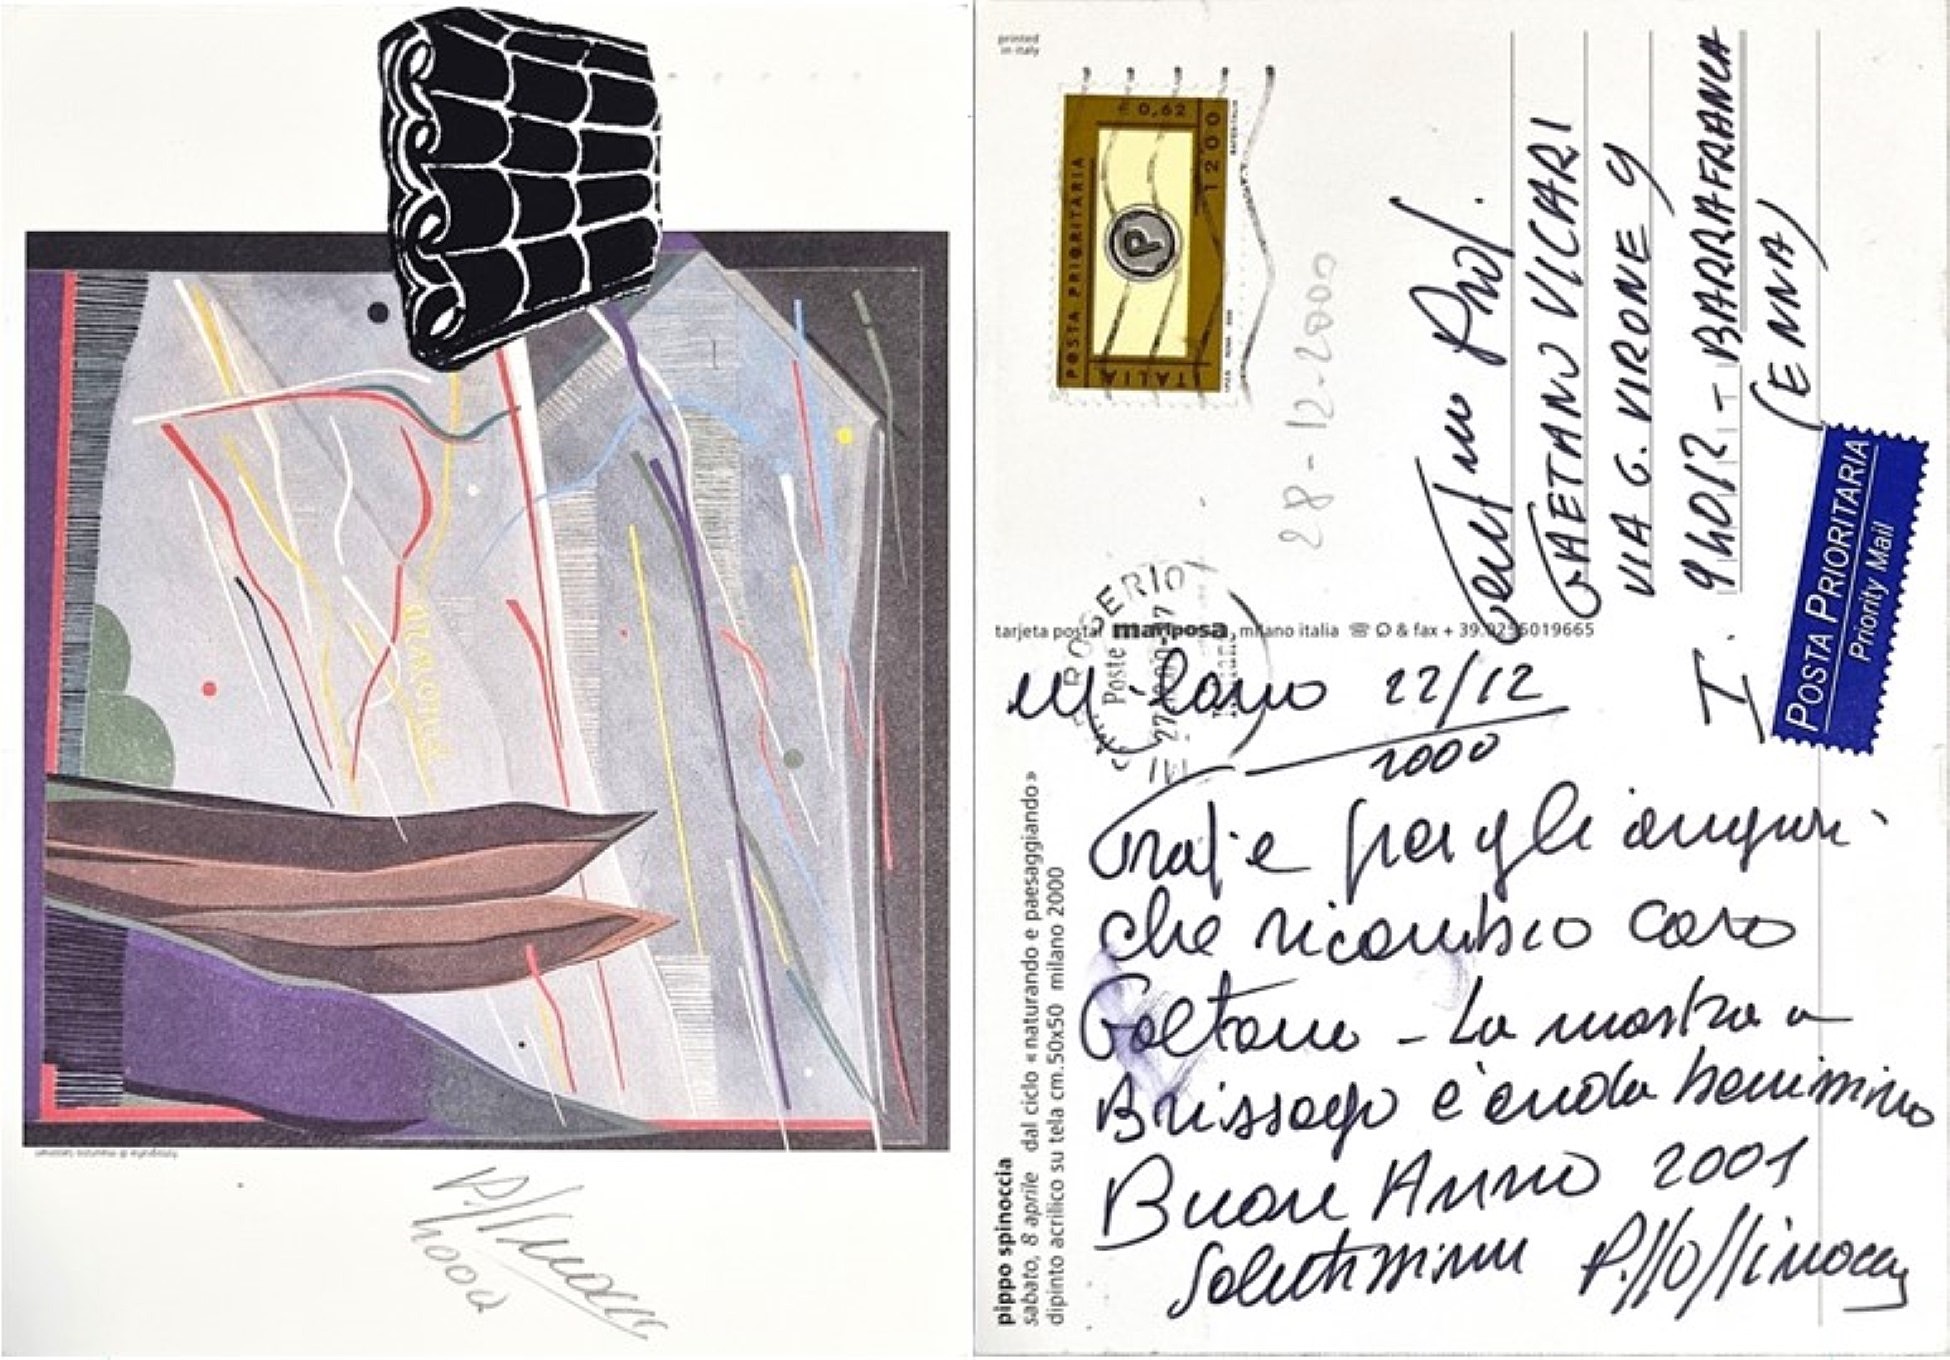 fotografia di maurizio
2000
printed
in italy
€ 0,62
1200
POSTA PRIORITARIA
ITALIA
P
28-12-2000
Prof.
GAETANO VICARI
VIA G. VIRONE 9
94012 - BARRAFRANCA
(ENNA)
I.
POSTA PRIORITARIA
Priority Mail
tarjeta postal mariposa, milano italia & fax + 39.0255019665
Poste
Milano 22/12
2000
Grazie per gli auguri
che ricambio caro
Gaetano - La mostra a
Brissago è andata benissimo
Buon Anno 2001
Salutissimi P.ppo Spinoccia
pippo spinoccia
sabato, 8 aprile dal ciclo «naturando e paesaggiando»
dipinto acrilico su tela cm.50x50 milano 2000